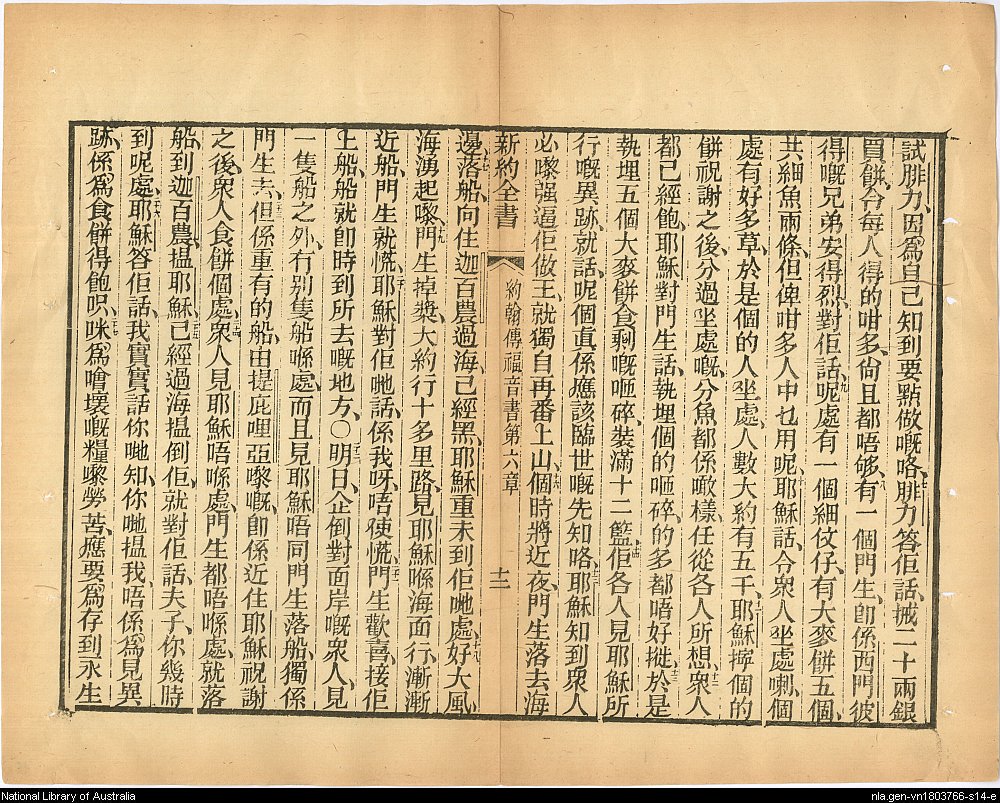 試腓力、因爲自己知到要點做嘅咯、七腓力答佢話、搣二十兩銀
買餅、令每人得的咁多、尙且都唔够、八有一個門生、卽係西門彼
得嘅兄弟安得烈、對佢話、九呢處有一個細仗仔、有大麥餅五個、
共細魚兩條、但俾咁多人中乜用呢、十耶穌話、令衆人坐處喇、個
處有好多草、於是個的人坐處、人數大約有五千、十一耶穌擰個的
餅祝謝之後、分過坐處嘅、分魚都係噉樣、任從各人所想、十二衆人
都已經飽、耶穌對門生話、執埋個的咂碎的多、都唔好摐、十三於是
執埋五個大麥餅食剩嘅咂碎、裝滿十二籃、十四佢各人見耶穌所
行嘅異跡、就話、呢個眞係應該臨世嘅先知咯、十五耶穌知到衆人
必嚟强逼佢做王、就獨自再番上山、十六個時將近夜、門生落去海
新約全書 約翰傳福音書第六章 十二
邊、十七落船向住迦百農過海、已經黑、耶穌重未到佢哋處、十八好大風、
海湧起嚟、十九門生掉槳、大約行十多里路、見耶穌喺海面行、漸漸
近船、門生就慌、二十耶穌對佢哋話、係我呀、唔使慌、二一門生歡喜接佢
上船、船就卽時到所去嘅地方、〇二二明日、企倒對面岸嘅衆人、見
一隻船之外、有別隻船喺處、而且見耶穌唔同門生落船、獨係
門生去、二三但係重有的船、由提庇哩亞嚟嘅、卽係近住耶穌祝謝
之後、衆人食餅個處、二四衆人見耶穌唔喺處、門生都唔喺處、就落
船到迦百農、搵耶穌、二五已經過海搵倒佢、就對佢話、夫子、你幾時
到呢處、二六耶穌答佢話、我實實話你哋知、你哋搵我、唔係爲見異
跡、係爲食餅得飽呮、二七咪爲噲壞嘅糧嚟勞苦、應要爲存到永生
National Library of Australia
nla.gen-vn1803766-s14-e